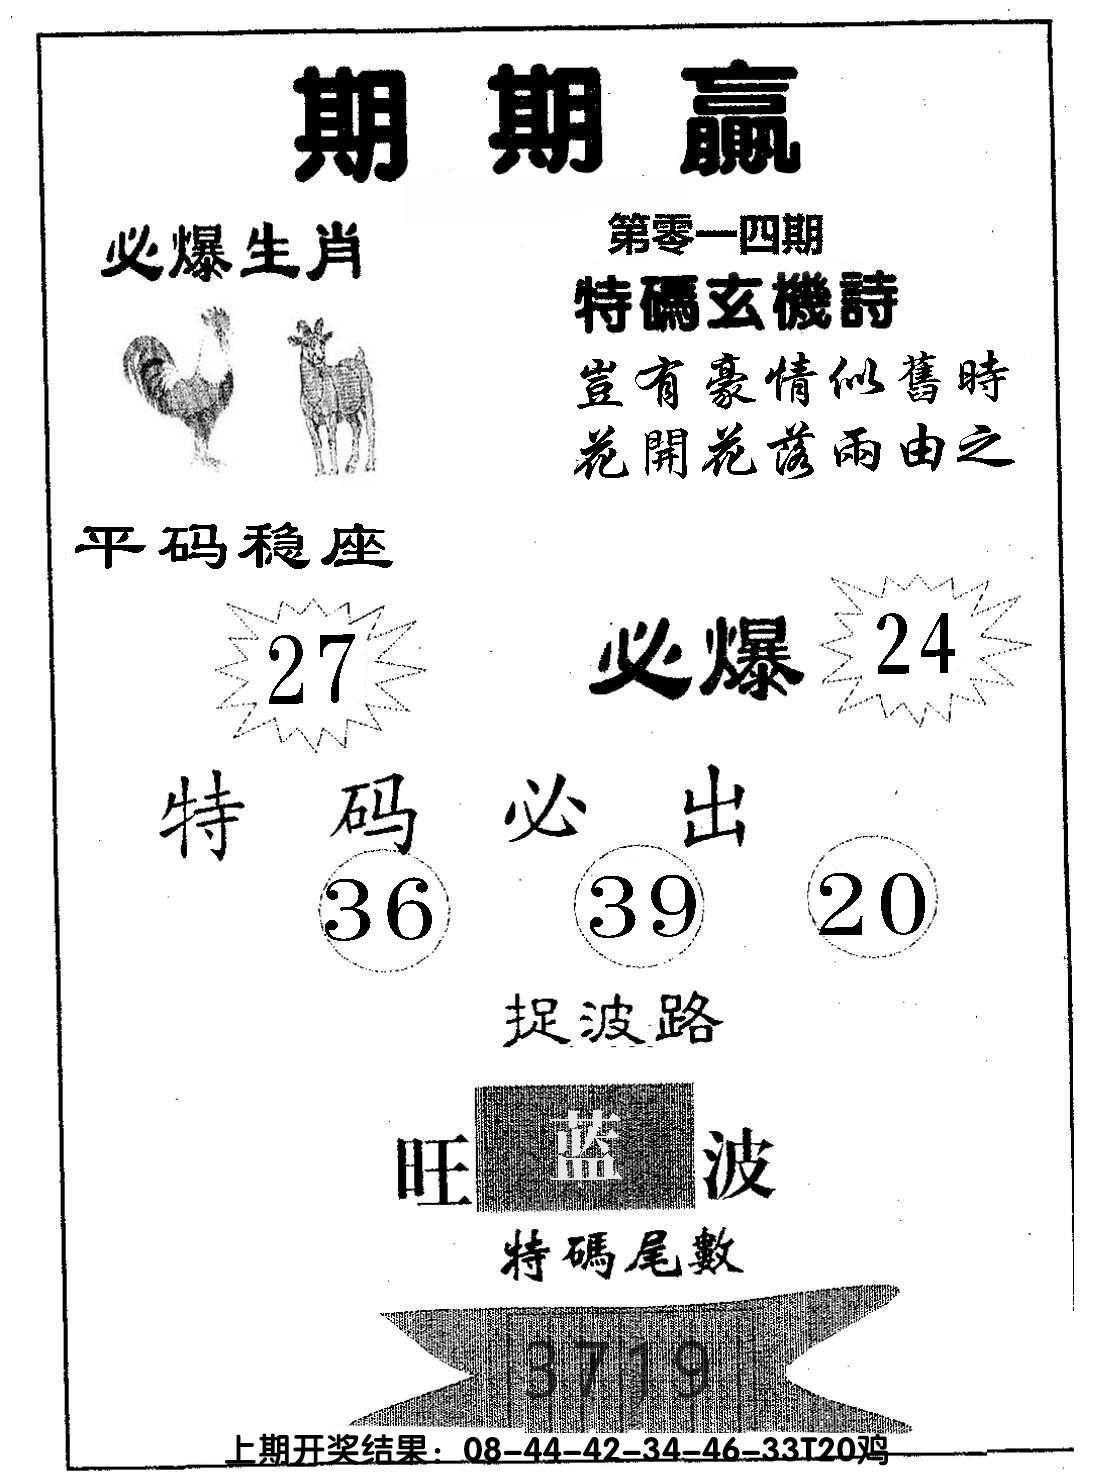 期期赢
必爆生肖
第零一四期
特碼玄機詩
豈有豪情似舊時
花開花落兩由之
平码稳座
27
必爆 24
特码必出
36 39 20
捉波路
旺 蓝 波
特碼尾數
3719
上期开奖结果：08-44-42-34-46-33T20鸡